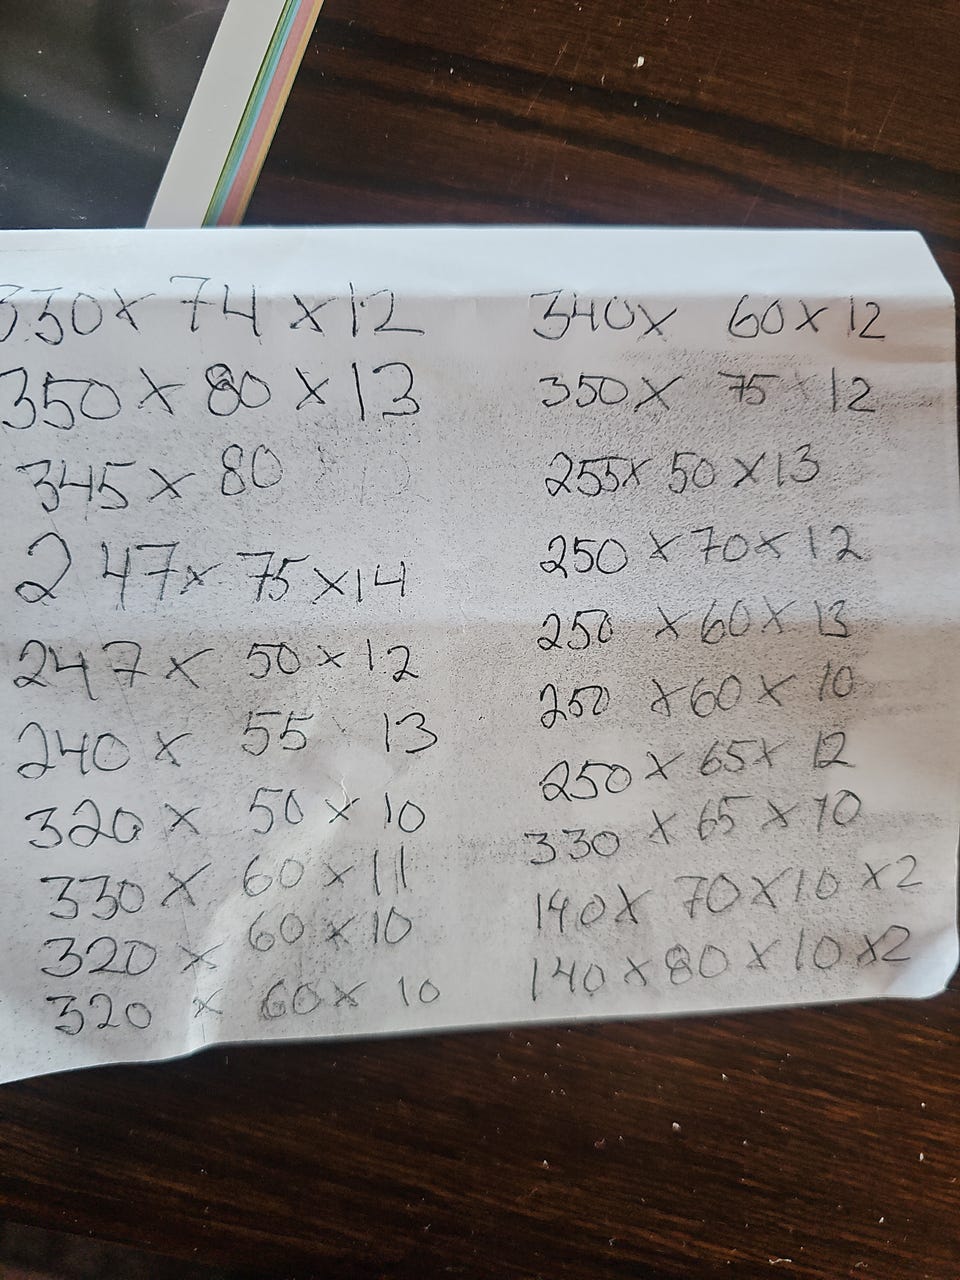 330 x 74 x 12
350 x 80 x 13
345 x 80
247 x 75 x 14
247 x 50 x 12
240 x 55 13
320 x 50 x 10
330 x 60 x 11
320 x 60 x 10
320 x 60 x 10
340 x 60 x 12
350 x 75 12
255 x 50 x 13
250 x 70 x 12
250 x 60 x 13
250 x 60 x 10
250 x 65 x 12
330 x 65 x 10
140 x 70 x 10 x 2
140 x 80 x 10 x 2